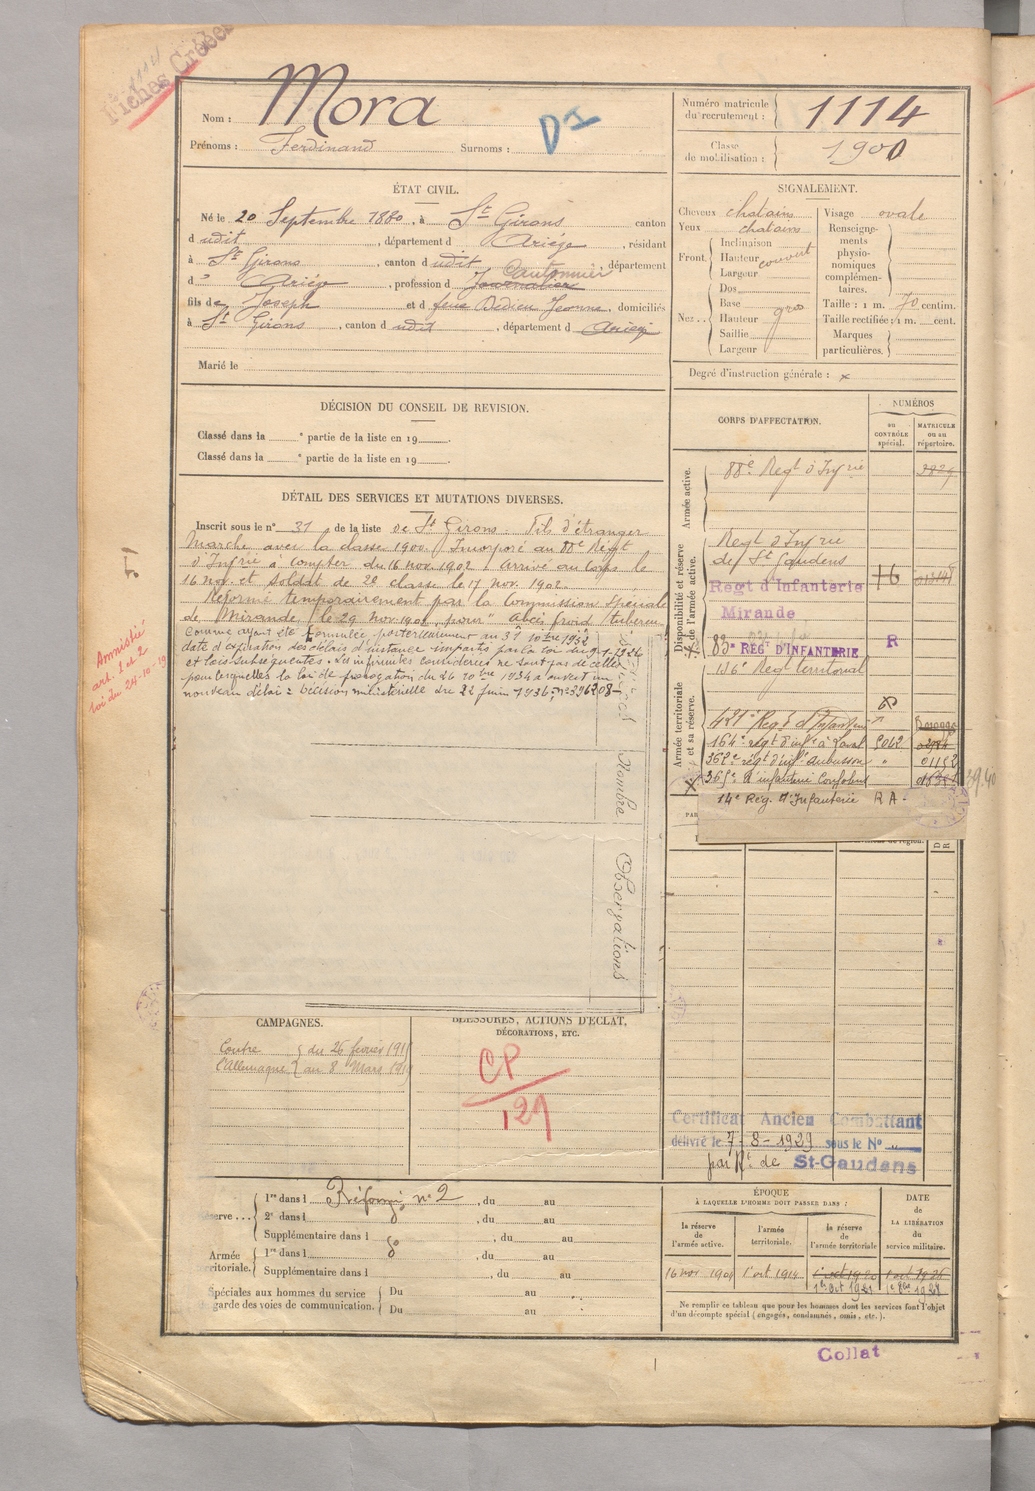 1114
Fiches Créées
Nom : Mora
Prénoms : Ferdinand Surnoms :
D I
Numéro matricule du recrutement : 1114
Classe de mobilisation : 1900
ÉTAT CIVIL.
Né le 20 Septembre 1880, à St Girons canton
d udit, département d Ariège, résidant
à St Girons, canton d udit département
d Ariège, profession d Journalier Cantonnier
fils de Joseph et d feue Dedieu Jeanne, domiciliés
à St Girons, canton d udit, département d Ariège
Marié le
SIGNALEMENT.
Cheveux chatains
Yeux chatains
Front.
Inclinaison
Hauteur couvert
Largeur
Nez..
Dos
Base
Hauteur gros
Saillie
Largeur
Visage ovale
Renseignements physionomiques complémentaires.
Taille : 1 m. 70 centim.
Taille rectifiée : 1 m. cent.
Marques particulières.
Degré d'instruction générale : x
DÉCISION DU CONSEIL DE REVISION.
Classé dans la e partie de la liste en 19 .
Classé dans la e partie de la liste en 19 .
DÉTAIL DES SERVICES ET MUTATIONS DIVERSES.
Inscrit sous le n° 31 de la liste de St Girons. Fils d'étranger
Marche avec la classe 1900. Incorporé au 88e Régt
d'Infrie à compter du 16 nov. 1902. Arrivé au Corps le
16 nov. et soldat de 2e classe le 17 nov. 1902.
Réformé temporairement par la Commission spéciale
de Mirande, le 29 nov. 1902, pour "Abcès froid tubercu
Comme ayant été formulée postérieurement au 31 10bre 1932
date d'expiration des délais d'instance impartis par la loi du 9-1-1926
et lois subséquentes. Les infirmités considérées ne sont pas de celles
pour lesquelles la loi de prorogation du 26 10bre 1934 a ouvert un
nouveau délai : Décision ministérielle du 22 juin 1936, n° 396208-
Nombre
Observations
Amnistié
art. 1 et 2
loi du 24-10-19
CORPS D'AFFECTATION.
NUMÉROS
au CONTRÔLE spécial.
MATRICULE ou au répertoire.
Armée active.
88e Regt d'Infrie
Disponibilité et réserve de l'armée active.
Regt d'Infrie
de St Gaudens
Regt d'Infanterie
Mirande
83e REGt D'INFANTERIE R
Armée territoriale et sa réserve.
136e Regt territorial
421e Regt d'Infanterie
164e régt d'inf. à Laval 5042
362e régt d'inf. Aubusson " 01152
365e d'infanterie Confolens
14e Rég. d'Infanterie R A -
39.40
CAMPAGNES.
Contre l'Allemagne { du 26 février 191
au 8 Mars 19
BLESSURES, ACTIONS D'ÉCLAT,
DÉCORATIONS, ETC.
CP
129
Certificat Ancien Combattant
délivré le 7-8-1929 sous le N°
par Rt. de St-Gaudens
1re dans l Réformé n° 2, du au
serve ... { 2e dans l , du au
Supplémentaire dans l , du au
Armée
ritoriale.
1re dans l , du au
Supplémentaire dans l , du au
Spéciales aux hommes du service
garde des voies de communication. { Du au
Du au
ÉPOQUE
À LAQUELLE L'HOMME DOIT PASSER DANS :
la réserve de l'armée active.
l'armée territoriale.
la réserve de l'armée territoriale
DATE de LA LIBÉRATION du service militaire.
16 nov. 1904
1er oct 1914
1er oct 1920
1er oct 1926
1er Oct 1921
Ne remplir ce tableau que pour les hommes dont les services font l'objet
d'un décompte spécial (engagés, condamnés, omis, etc.).
Collat